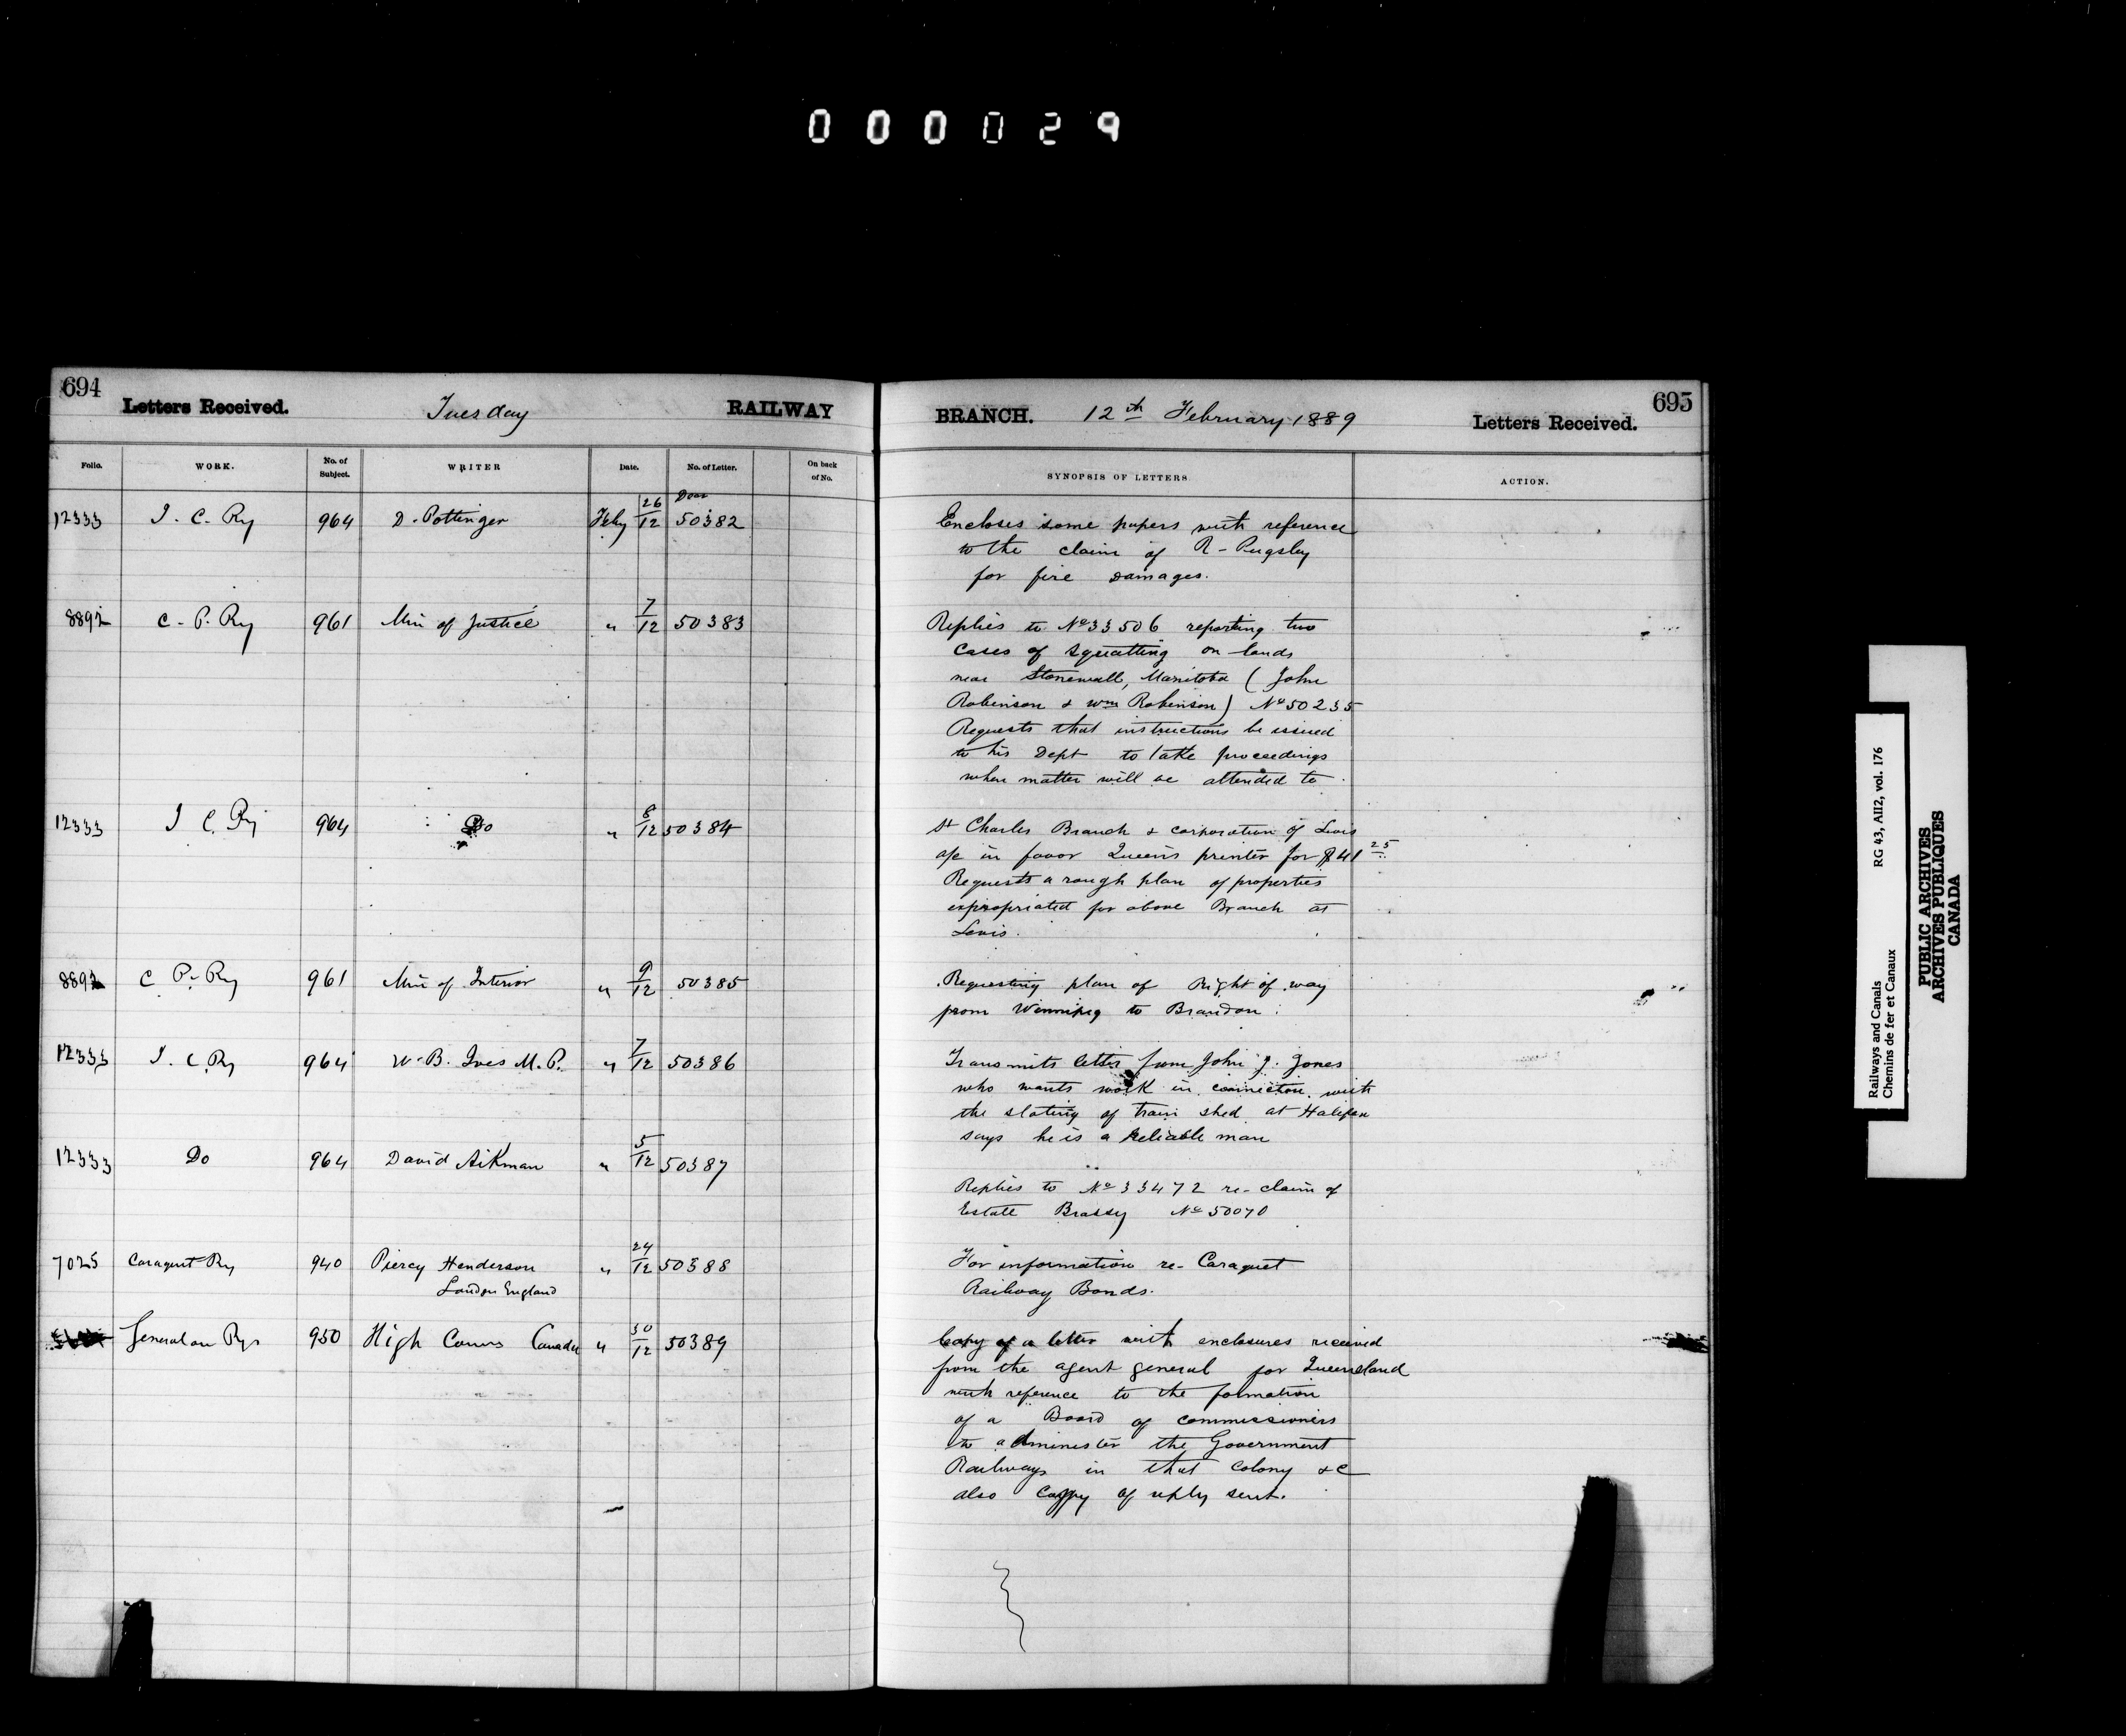 000029
694
Letters Received.
Tuesday
RAILWAY
Folio.
WORK.
No. of Subject.
WRITER
Date.
No. of Letter.
On back of No.
12333 I. C. Ry 964 D. Pottinger Feby 26/12 50382
8892 C. P. Ry 961 Min of Justice " 7/12 50383
12333 I C. Ry 964 Do " 8/12 50384
8892 C P. Ry 961 Min of Interior " 9/12 50385
12333 I. C. Ry 964 W. B. Ives M. P. " 7/12 50386
12333 Do 964 David Aikman " 5/12 50387
7025 Caraquet Ry 940 Piercy Henderson " 24/12 50388
London England
General on Rys 950 High Comms Canada " 30/12 50389
BRANCH.
12th February 1889
695
Letters Received.
SYNOPSIS OF LETTERS
ACTION.
Encloses some papers with reference
to the claim of R - Pugsley
for fire damages.
Replies to No 33506 reporting two
cases of squatting on lands
near Stonewall, Manitoba (John
Robinson & Wm Robinson) No 50235
Requests that instructions be issued
to his Dept to take proceedings
when matter will be attended to.
St Charles Branch & corporation of Levis
a/c in favor Queen's printer for $41 25
Requests a rough plan of properties
expropriated for above Branch at
Levis.
Requesting plan of Right of way
from Winnipeg to Brandon.
Transmits letter from John J. Jones
who wants work in connection with
the slating of train shed at Halifax
says he is a reliable man
Replies to No 33472 re-claim of
Estate Brassy No 50070
For information re- Caraquet
Railway Bonds.
Copy of a letter with enclosures received
from the agent general for Queensland
with reference to the formation
of a Board of commissioners
to administer the Government
Railways in that Colony &c
also Copy of reply sent.
Railways and Canals RG 43, AII2, vol. 176
Chemins de fer et Canaux
PUBLIC ARCHIVES
ARCHIVES PUBLIQUES
CANADA